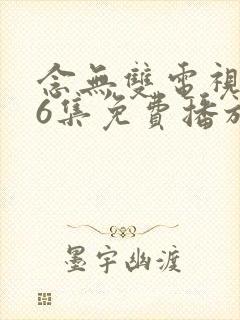 念無雙電視
6集免費播放
墨宇幽渡